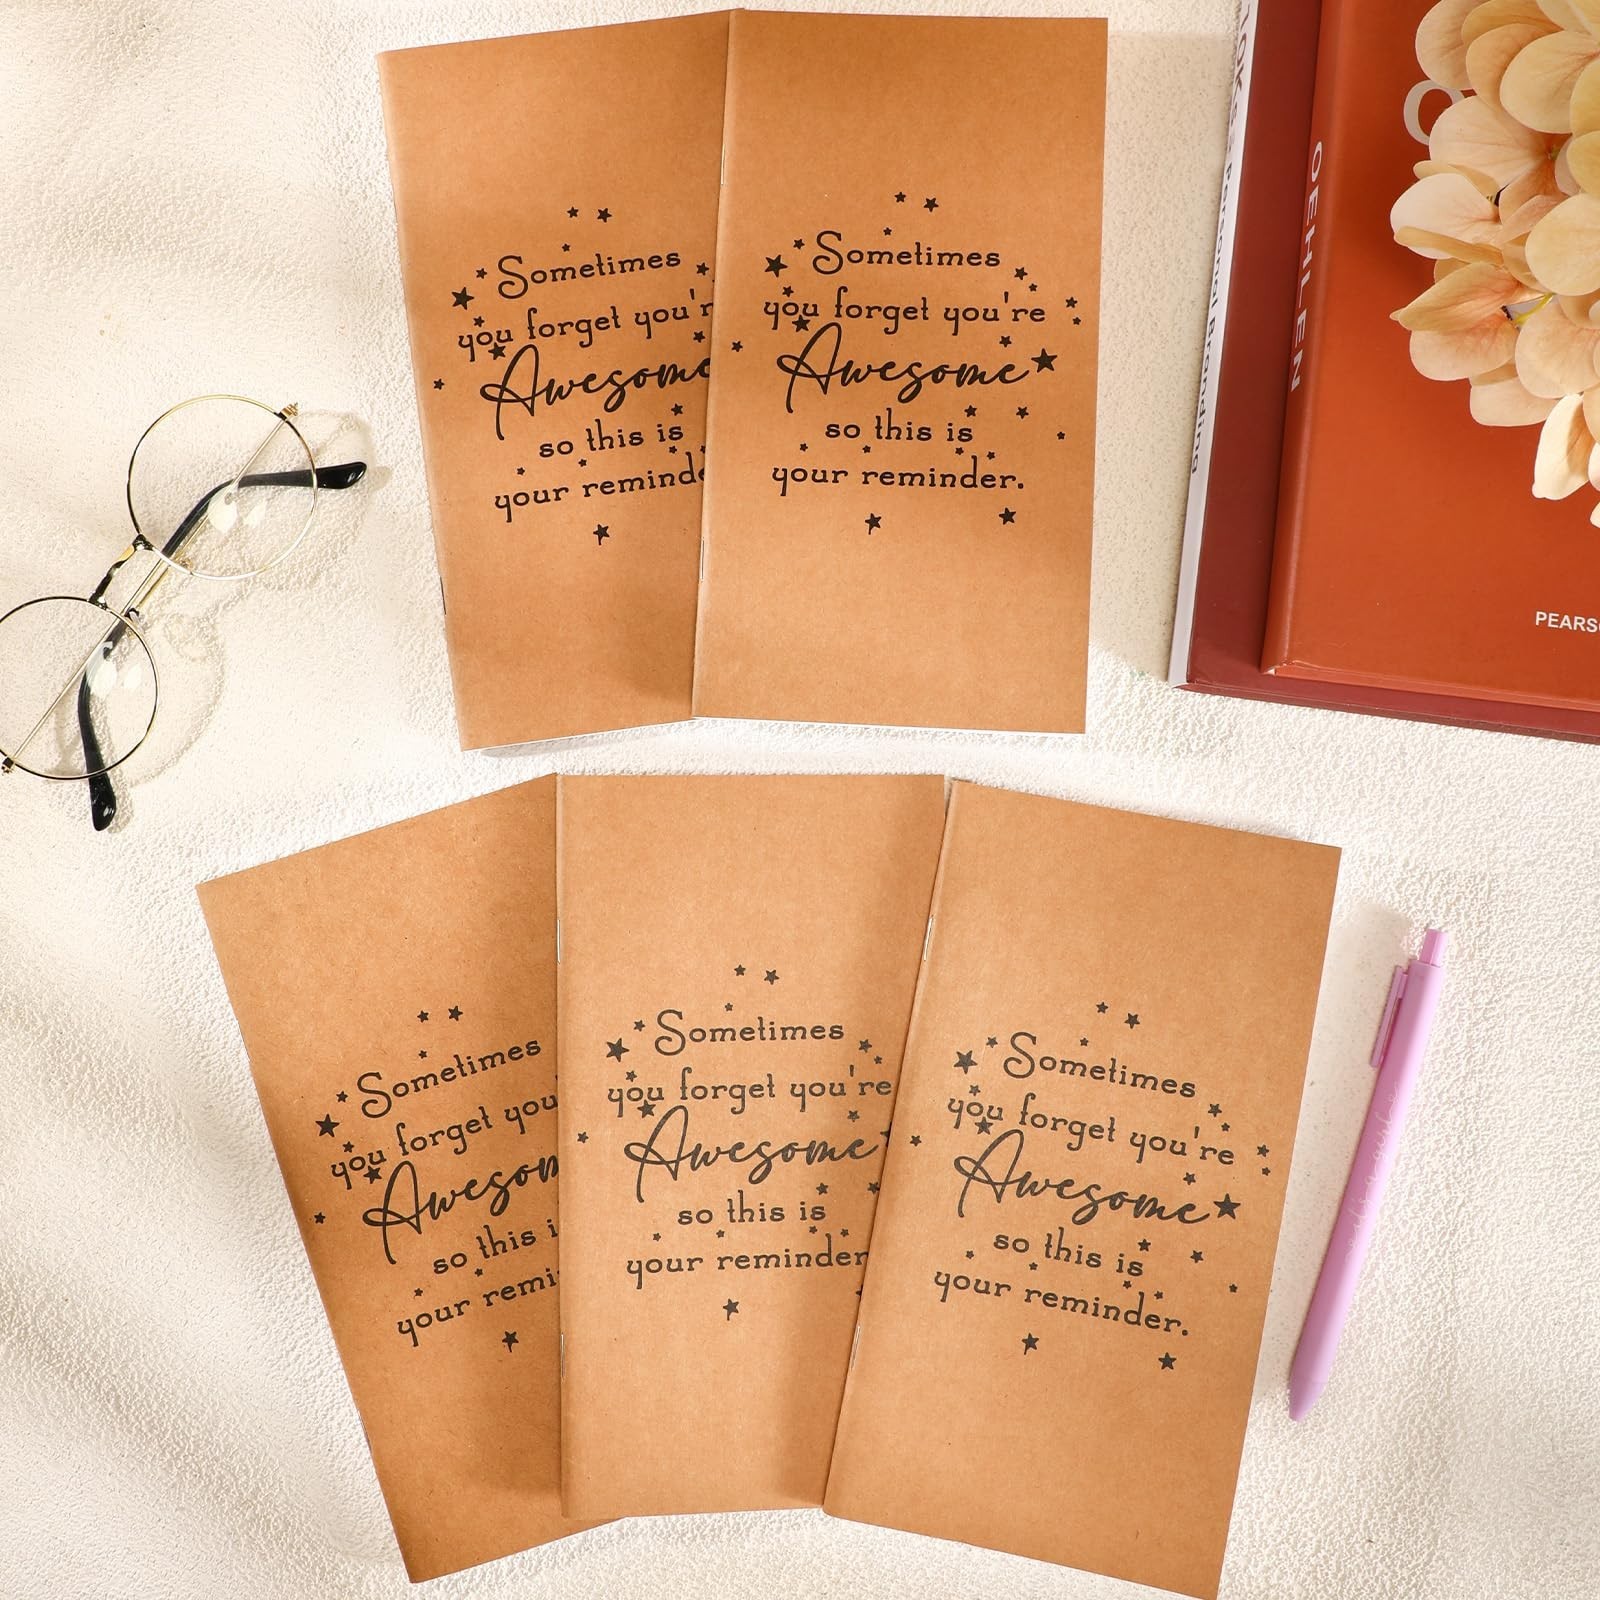 Sometimes
you forget you'r
Awesome
so this is
your reminde
Sometimes
you forget you're
Awesome
so this is
your reminder.
OEHLEN
PEARSO
Personal Branding
Sometimes
you forget you
Awesom
so this i
your remi
Sometimes
you forget you're
Awesome
so this is
your reminder
Sometimes
you forget you're
Awesome
so this is
your reminder.